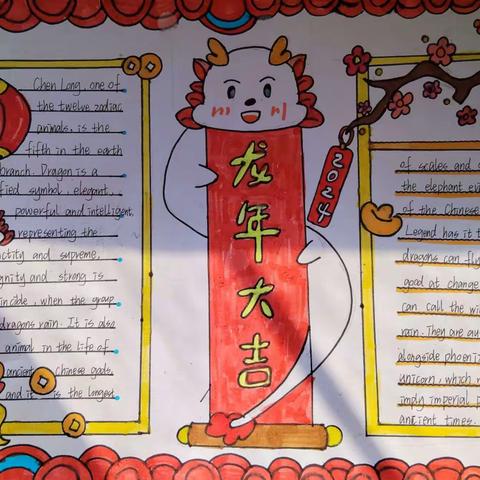 Chen Long, one of
the twelve zodiac
animals, is the
fifth in the earth
branch. Dragon is a
symbol, elegant,
powerful and intelligent.
representing the
and supreme,
and strong is
, when the group
dragons rain. It is also
animal in the life of
ancient chinese gods,
and it is the longest
龙年大吉
2024
of scales and
the elephant
of the Chinese
Legend has it
dragons can fly
good at change
can call the
rain. They are
alongside
unicorn, which
imply imperial
ancient times.